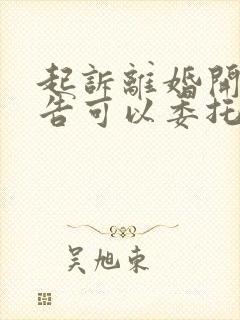 起訴離婚開
告可以委托
吴旭东